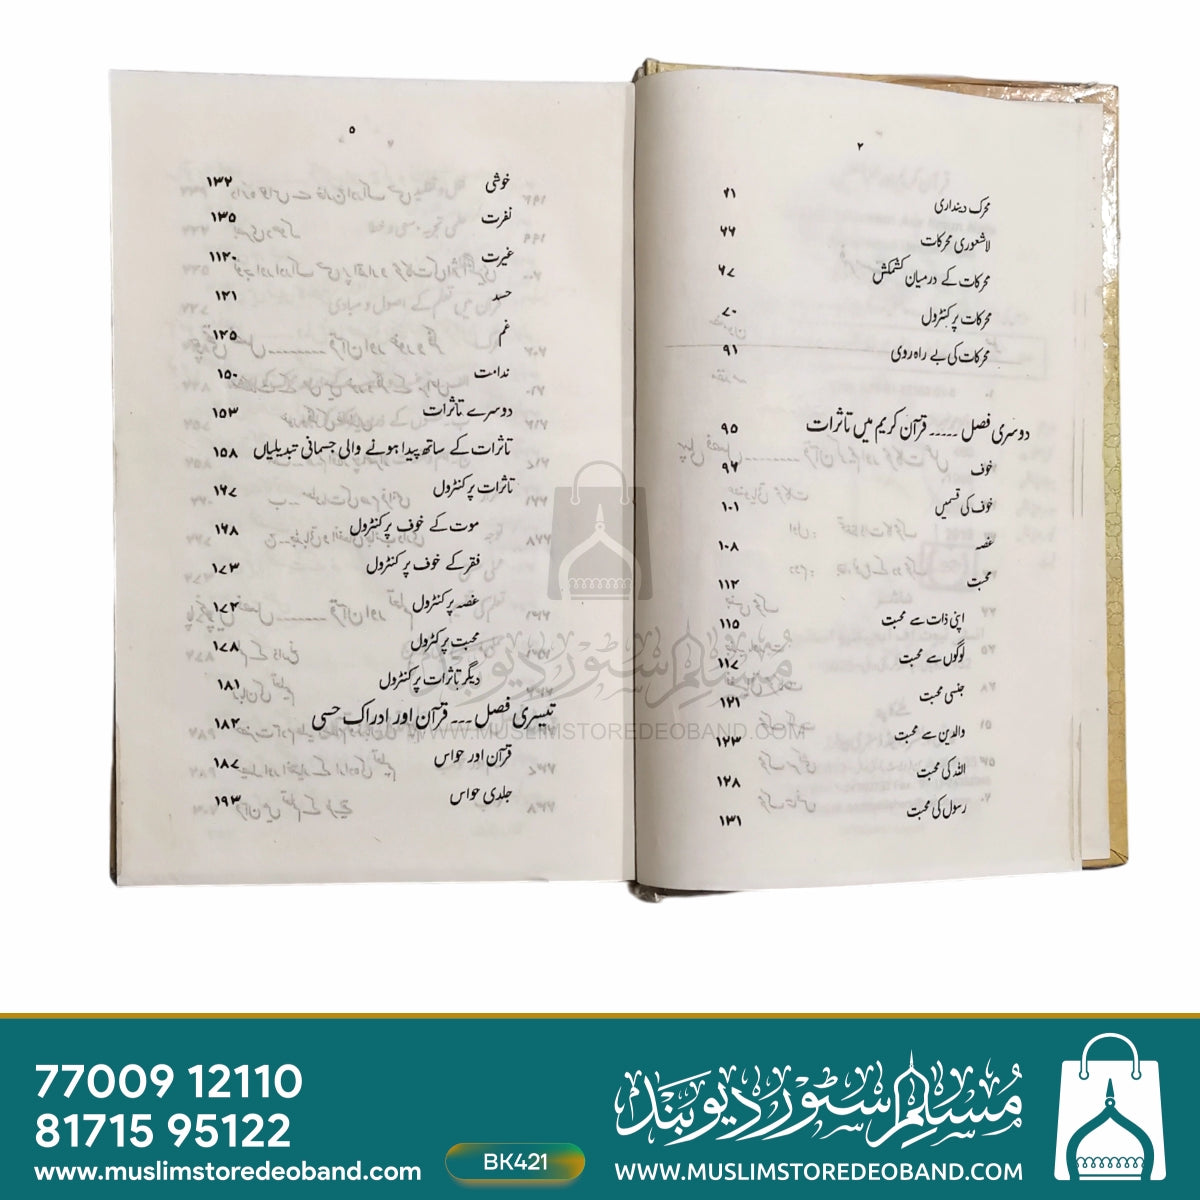 ۴
محرک دینداری ۶۱
لاشعوری محرکات ۶۶
محرکات کے درمیان کشمکش ۶۷
محرکات پر کنٹرول ۷۰
محرکات کی بے راہ روی ۹۱
دوسری فصل ..... قرآن کریم میں تاثرات ۹۵
خوف ۹۶
خوف کی قسمیں ۱۰۱
غصہ ۱۰۸
محبت ۱۱۲
اپنی ذات سے محبت ۱۱۵
لوگوں سے محبت ۱۱۷
جنسی محبت ۱۲۱
والدین سے محبت ۱۲۳
اللہ کی محبت ۱۲۸
رسول کی محبت ۱۳۱
۵
خوشی ۱۳۲
نفرت ۱۳۵
غیرت ۱۱۴۰
حسد ۱۴۱
غم ۱۴۵
ندامت ۱۵۰
دوسرے تاثرات ۱۵۳
تاثرات کے ساتھ پیدا ہونے والی جسمانی تبدیلیاں ۱۵۸
تاثرات پر کنٹرول ۱۶۷
موت کے خوف پر کنٹرول ۱۶۸
فقر کے خوف پر کنٹرول ۱۷۳
غصہ پر کنٹرول ۱۷۴
محبت پر کٹرول ۱۷۸
دیگر تاثرات پر کنٹرول ۱۸۱
تیسری فصل ... قرآن اور ادراک حسی ۱۸۴
قرآن اور حواس ۱۸۷
جلدی حواس ۱۹۳
مسلم سٹور دیوبند
WWW.MUSLIMSTOREDEOBAND.COM
77009 12110
81715 95122
www.muslimstoredeoband.com
BK421
مسلم سٹور دیوبند
WWW.MUSLIMSTOREDEOBAND.COM